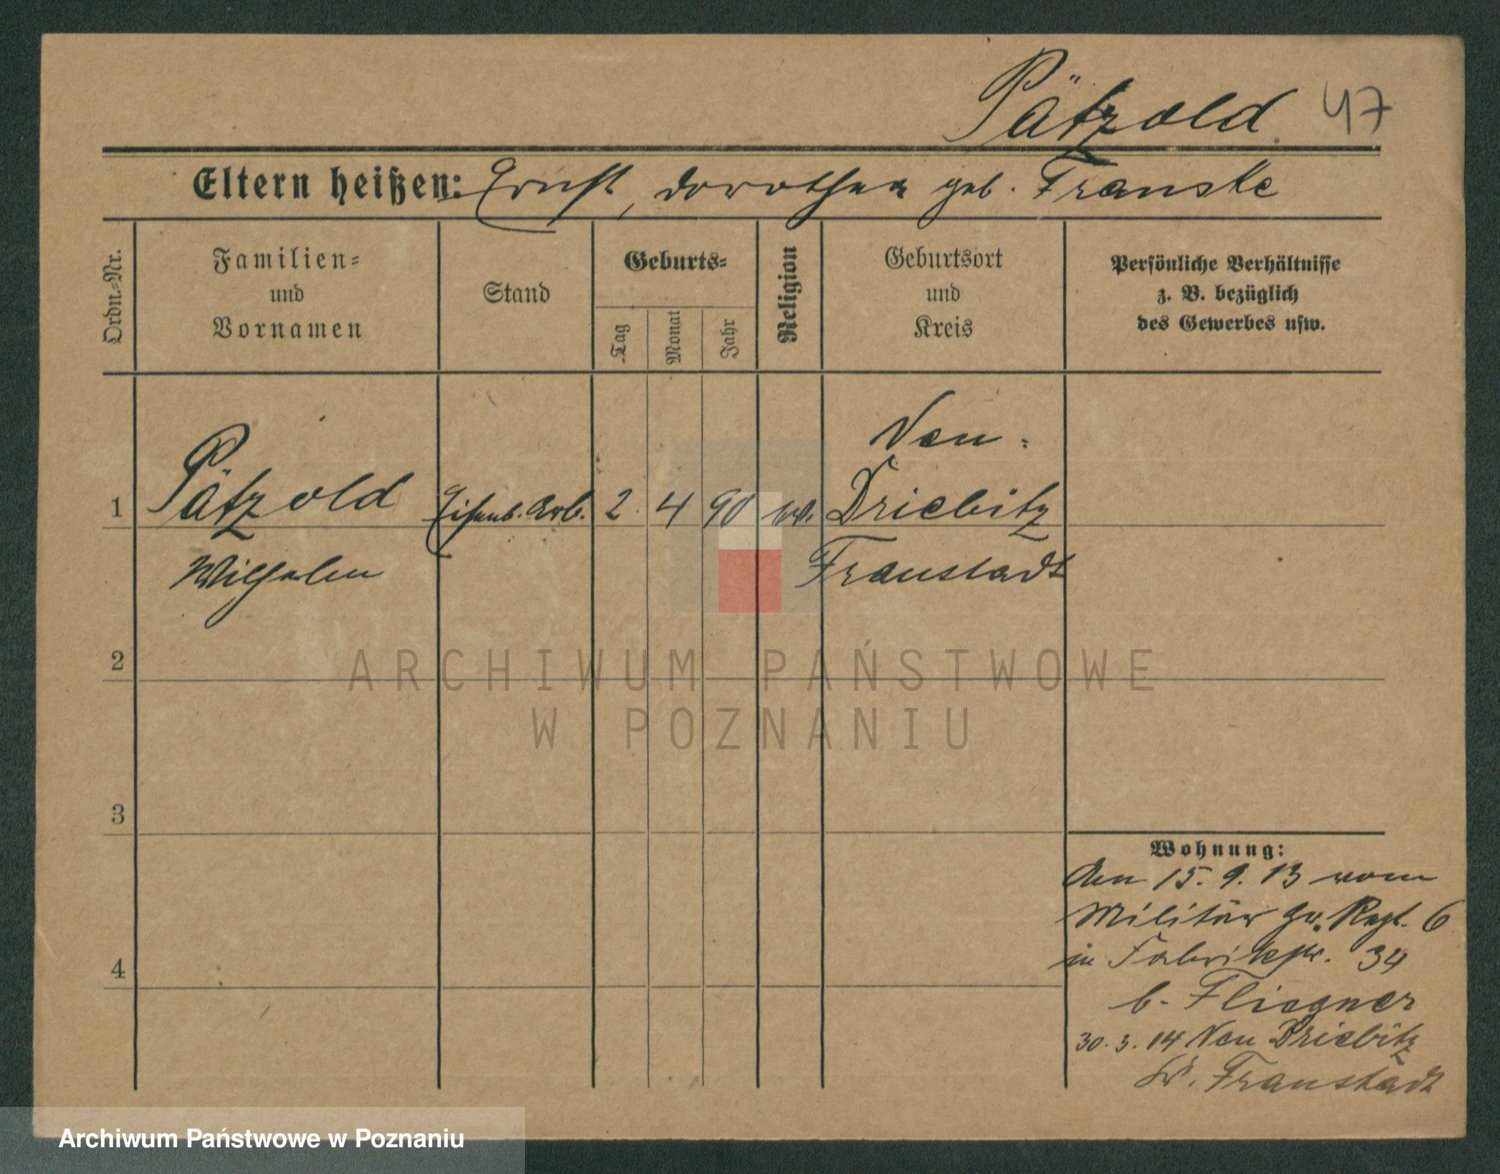 Pätzold 47
Eltern heißen: Ernst, Dorothea geb. Franske
Ordn.-Nr.
Familien-
und
Vornamen
Stand
Geburts-
Tag
Monat
Jahr
Religion
Geburtsort
und
Kreis
Persönliche Verhältnisse
z. B. bezüglich
des Gewerbes usw.
Neu-
1 Pätzold Eisenb. Arb. 2 4 90 ev. Driebitz
Wilhelm Fraustadt
2
ARCHIWUM PAŃSTWOWE
W POZNANIU
3
Wohnung:
den 15. 9. 13 vom
Militär Regt. 6
in Fabrikstr. 34
4
b. Fliegner
30. 3. 14 Neu Driebitz
Kr. Fraustadt
Archiwum Państwowe w Poznaniu